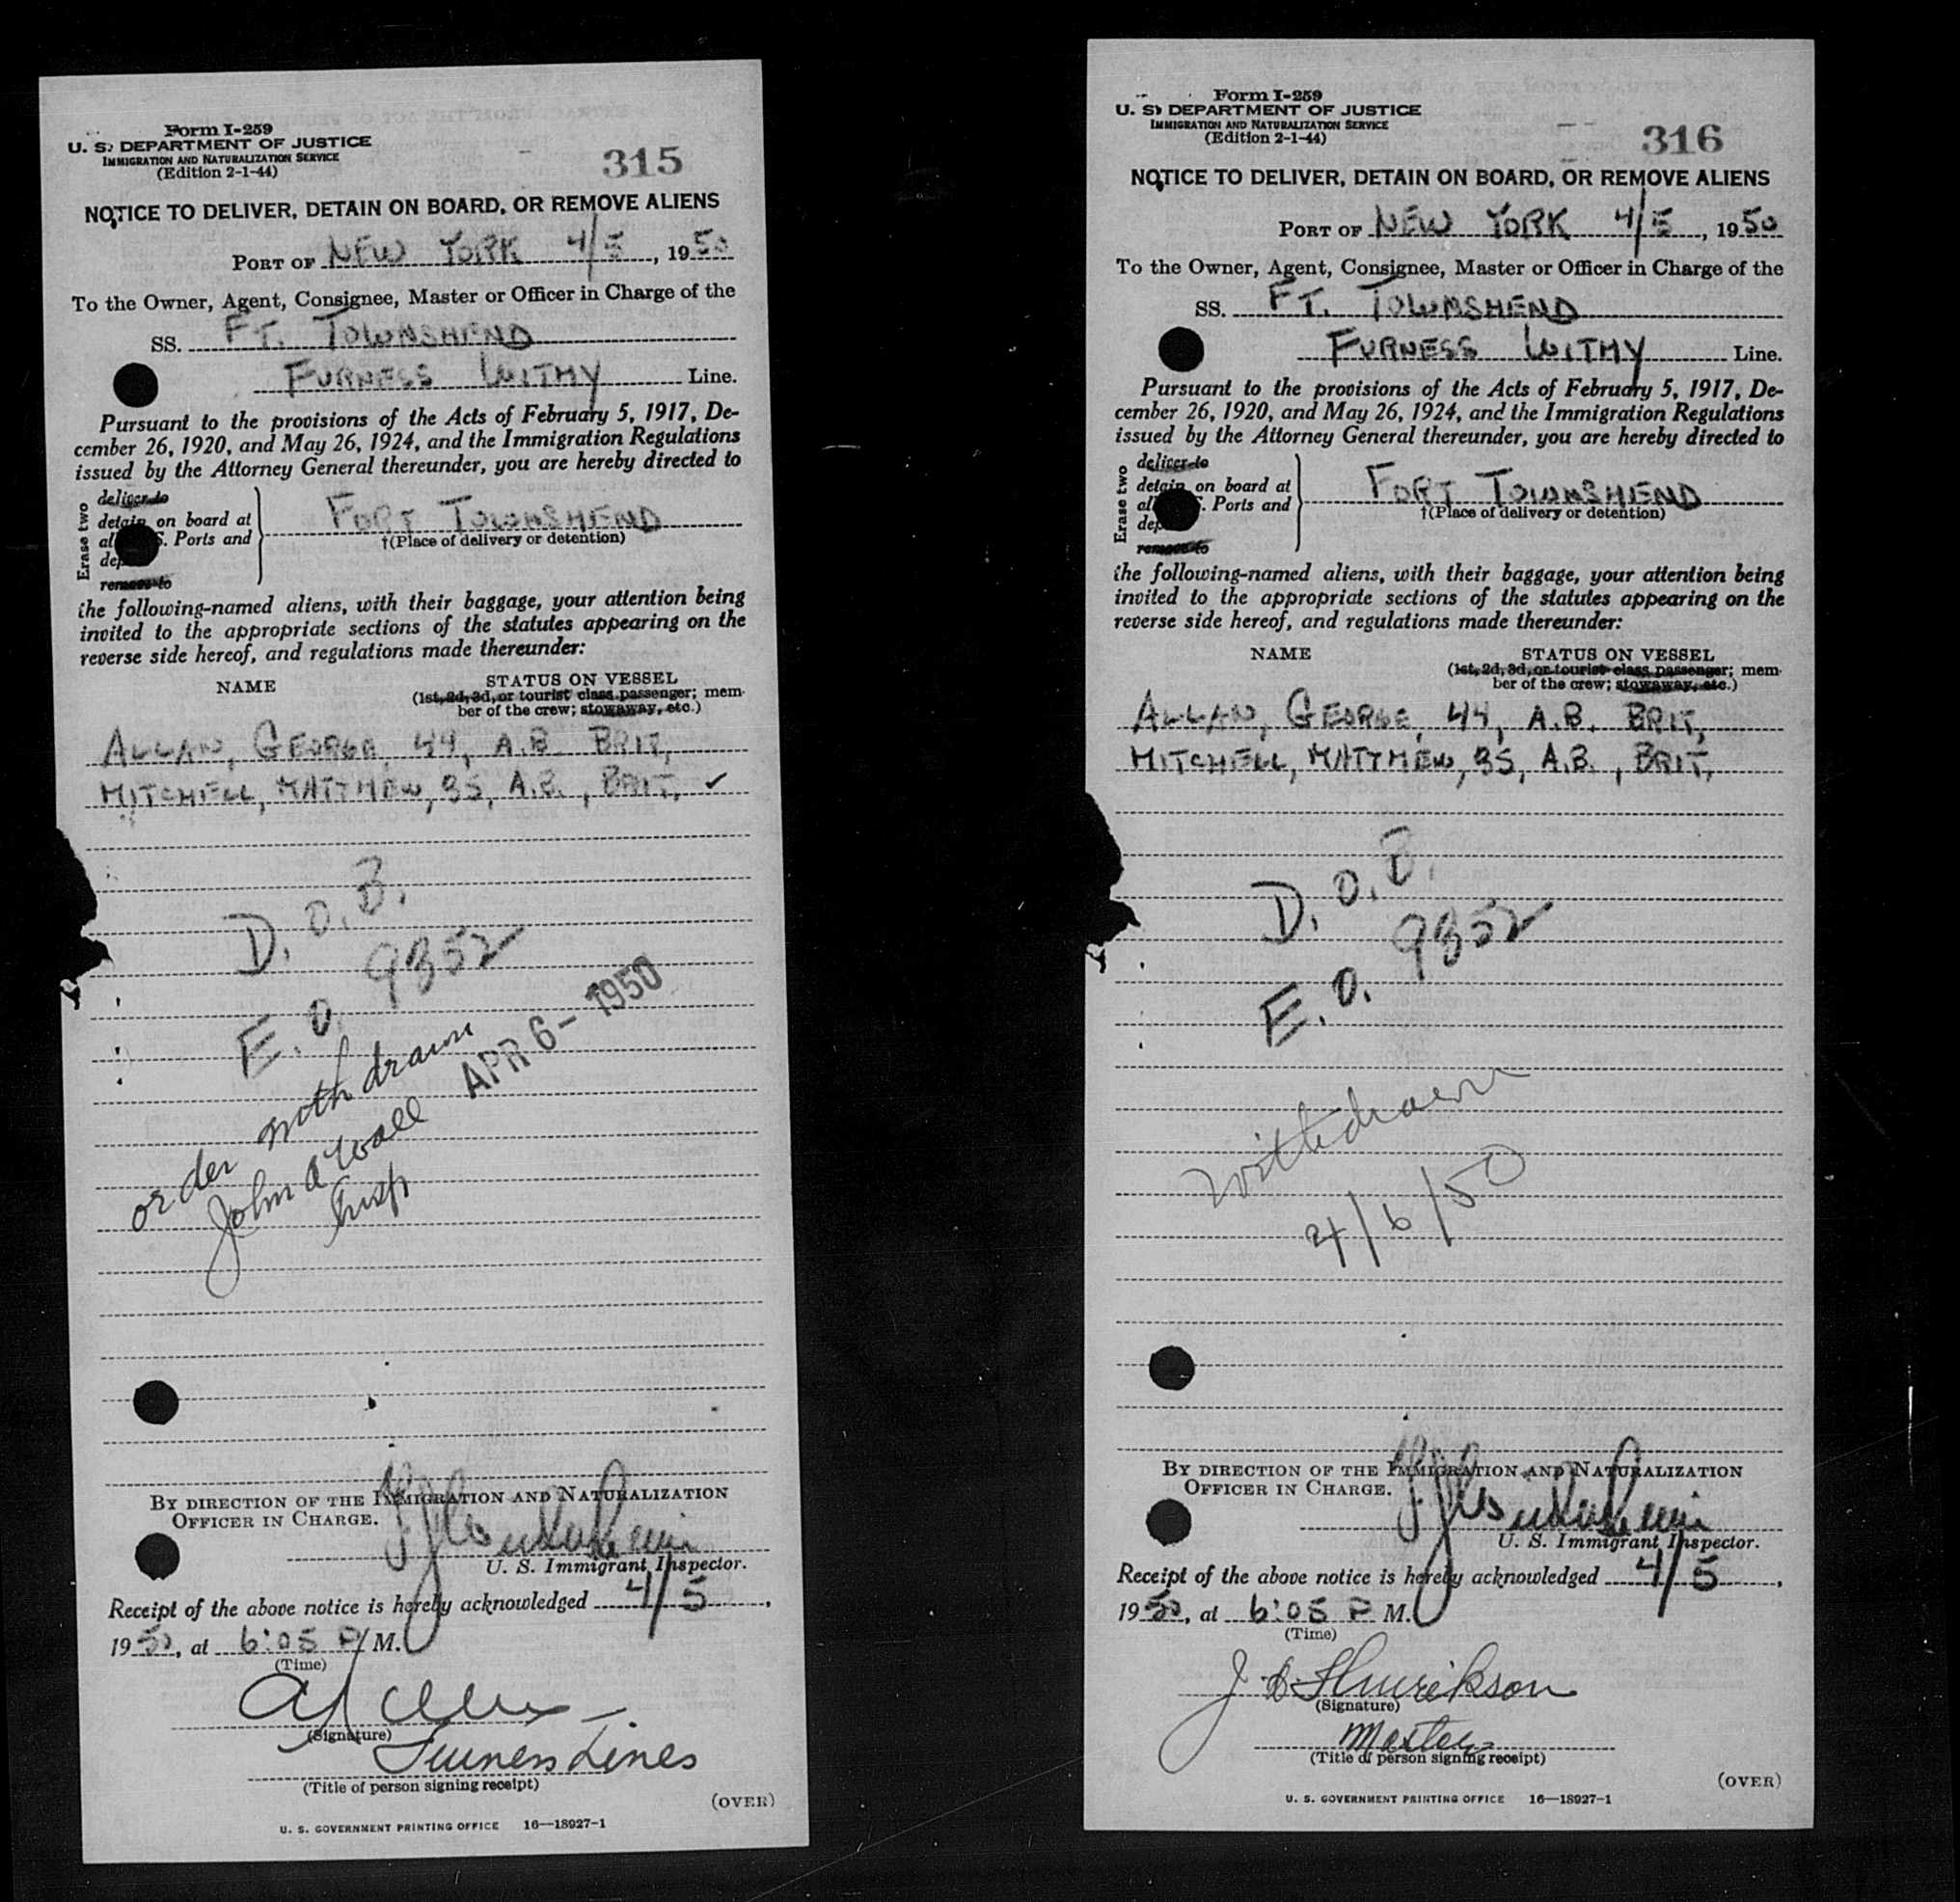 Form I-259
U. S. DEPARTMENT OF JUSTICE
IMMIGRATION AND NATURALIZATION SERVICE
(Edition 2-1-44)
315
NOTICE TO DELIVER, DETAIN ON BOARD, OR REMOVE ALIENS
PORT OF NEW YORK 4/5, 1950
To the Owner, Agent, Consignee, Master or Officer in Charge of the
SS. FT. TOWNSHEND
FURNESS WITHY Line.
Pursuant to the provisions of the Acts of February 5, 1917, De-
cember 26, 1920, and May 26, 1924, and the Immigration Regulations
issued by the Attorney General thereunder, you are hereby directed to
Erase two
deliver to
detain on board at
al S. Ports and
dep
remove to
FORT TOWNSHEND
†(Place of delivery or detention)
the following-named aliens, with their baggage, your attention being
invited to the appropriate sections of the statutes appearing on the
reverse side hereof, and regulations made thereunder:
NAME STATUS ON VESSEL
(1st, 2d, 3d, or tourist class passenger; mem-
ber of the crew; stowaway, etc.)
ALLAN, GEORGE, 44, A.B. BRIT,
MITCHELL, MATTHEW, 35, A.B., BRIT, ✓
D.O.B.
E.O. 9352
order withdrawn APR 6 - 1950
John A Wall
Insp
BY DIRECTION OF THE IMMIGRATION AND NATURALIZATION
OFFICER IN CHARGE.
U. S. Immigrant Inspector.
Receipt of the above notice is hereby acknowledged 4/5,
1950, at 6:05 P M.
(Time)
(Signature)
Furness Lines
(Title of person signing receipt)
(OVER)
U. S. GOVERNMENT PRINTING OFFICE 16—18927-1
Form I-259
U. S. DEPARTMENT OF JUSTICE
IMMIGRATION AND NATURALIZATION SERVICE
(Edition 2-1-44)
316
NOTICE TO DELIVER, DETAIN ON BOARD, OR REMOVE ALIENS
PORT OF NEW YORK 4/5, 1950
To the Owner, Agent, Consignee, Master or Officer in Charge of the
SS. FT. TOWNSHEND
FURNESS WITHY Line.
Pursuant to the provisions of the Acts of February 5, 1917, De-
cember 26, 1920, and May 26, 1924, and the Immigration Regulations
issued by the Attorney General thereunder, you are hereby directed to
Erase two
deliver to
detain on board at
al S. Ports and
dep
remove to
FORT TOWNSHEND
†(Place of delivery or detention)
the following-named aliens, with their baggage, your attention being
invited to the appropriate sections of the statutes appearing on the
reverse side hereof, and regulations made thereunder:
NAME STATUS ON VESSEL
(1st, 2d, 3d, or tourist class passenger; mem-
ber of the crew; stowaway, etc.)
ALLAN, GEORGE, 44, A.B. BRIT,
MITCHELL, MATTHEW, 35, A.B., BRIT,
D.O.B.
E.O. 9352
Withdrawn
4/6/50
BY DIRECTION OF THE IMMIGRATION AND NATURALIZATION
OFFICER IN CHARGE.
U. S. Immigrant Inspector.
Receipt of the above notice is hereby acknowledged 4/5,
1950, at 6:05 P M.
(Time)
(Signature)
Master
(Title of person signing receipt)
(OVER)
U. S. GOVERNMENT PRINTING OFFICE 16—18927-1